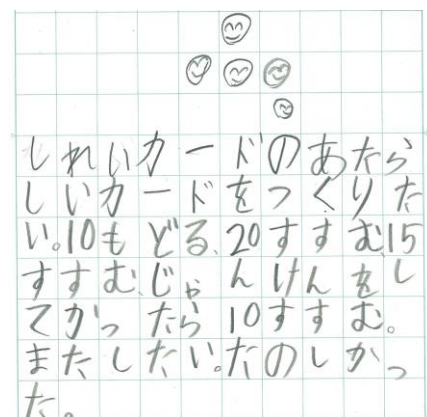 しれいカードのあたら
しいカードをつくりた
い。10もどる、20すすむ、15
すすむ、じゃんけんをし
てかったら10すすむ。
またしたい。たのしかっ
た。